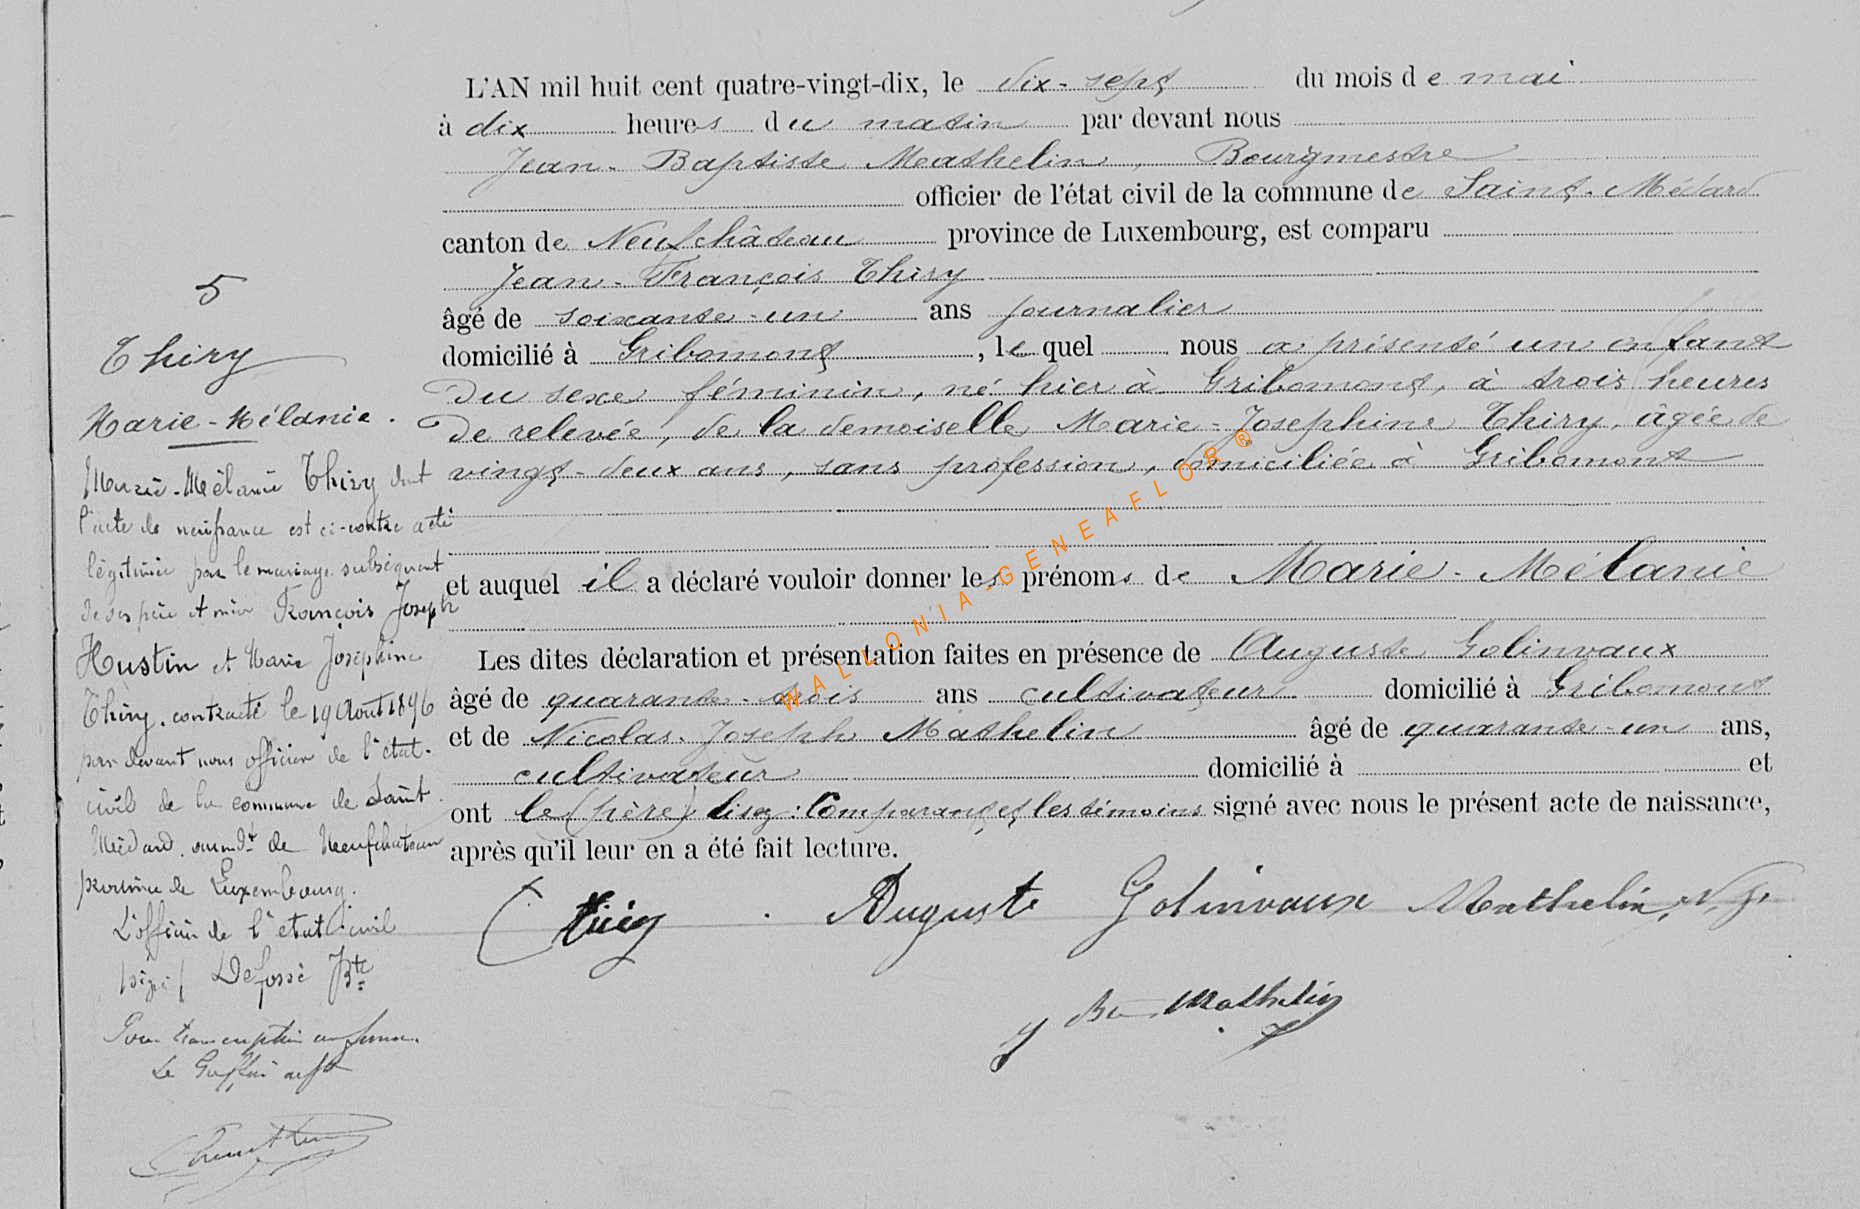 5
Thiry
Marie-Mélanie.
Marie-Mélanie Thiry dont
l'acte de naissance est ci-contre a été
légitimée par le mariage subséquent
de ses père et mère François Joseph
Hustin et Marie Joséphine
Thiry, contracté le 19 Août 1896
par devant nous officier de l'état-
civil de la commune de Saint
Médard, arrondt de Neufchateau
province de Luxembourg.
L'officier de l'état civil
signé/ Defossé JBte
Pour transcription conforme.
Le Greffier
L'AN mil huit cent quatre-vingt-dix, le dix-sept du mois de mai
à dix heures du matin par devant nous
Jean-Baptiste Mathelin, Bourgmestre
officier de l'état civil de la commune de Saint-Médard
canton de Neufchâteau province de Luxembourg, est comparu
Jean-François Thiry
âgé de soixante-un ans journalier
domicilié à Gribomont, lequel nous a présenté un enfant
du sexe féminin, né hier à Gribomont, à trois heures
de relevée, de la demoiselle Marie-Josephine Thiry, âgée de
vingt-deux ans, sans profession, domiciliée à Gribomont
et auquel il a déclaré vouloir donner les prénoms de Marie-Mélanie
Les dites déclaration et présentation faites en présence de Auguste Golinvaux
âgé de quarante-trois ans cultivateur domicilié à Gribomont
et de Nicolas-Joseph Mathelin âgé de quarante-un ans,
cultivateur domicilié à et
ont le (père) lisez: Comparant et les témoins signé avec nous le présent acte de naissance,
après qu'il leur en a été fait lecture.
Thiry Auguste Golinvaux Mathelin, N. J.
J Bte Mathelin
WALLONIA-GENEAFLOR®